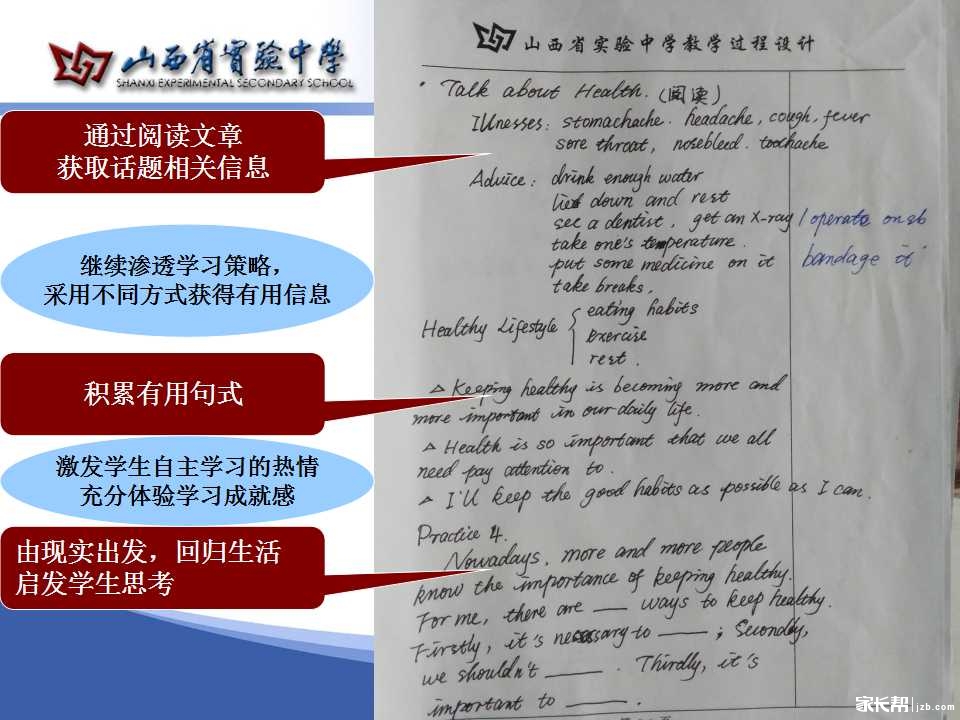 山西省实验中学
SHANXI EXPERIMENTAL SECONDARY SCHOOL
通过阅读文章
获取话题相关信息
继续渗透学习策略，
采用不同方式获得有用信息
积累有用句式
激发学生自主学习的热情
充分体验学习成就感
由现实出发，回归生活
启发学生思考
山西省实验中学教学过程设计
Talk about Health. (阅读)
Illnesses: stomachache. headache, cough, fever
sore throat, nosebleed. toothache
Advice: drink enough water
lie down and rest
see a dentist, get an X-ray / operate on sb
take one's temperature.
put some medicine on it bandage it
take breaks,
Healthy Lifestyle { eating habits
exercise
rest.
△ Keeping healthy is becoming more and
more important in our daily life.
△ Health is so important that we all
need pay attention to.
△ I'll keep the good habits as possible as I can.
Practice 4.
Nowadays, more and more people
know the importance of keeping healthy.
For me, there are ___ ways to keep healthy.
Firstly, it's necessary to ___ ; Secondly,
we shouldn't ___ . Thirdly, it's
important to ___
家长帮 jzb.com